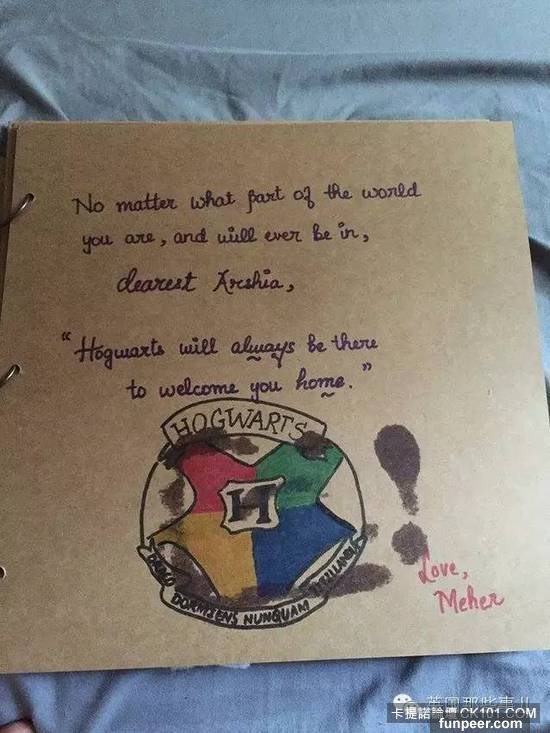 No matter what part of the world
you are, and will ever be in,
dearest Arshia,
"Hogwarts will always be there
to welcome you home."
HOGWARTS
H
DRACO
DORMIENS NUNQUAM
TITILLANDUS
Love,
Meher
英国那些事儿
卡提諾論壇 CK101.COM
funpeer.com